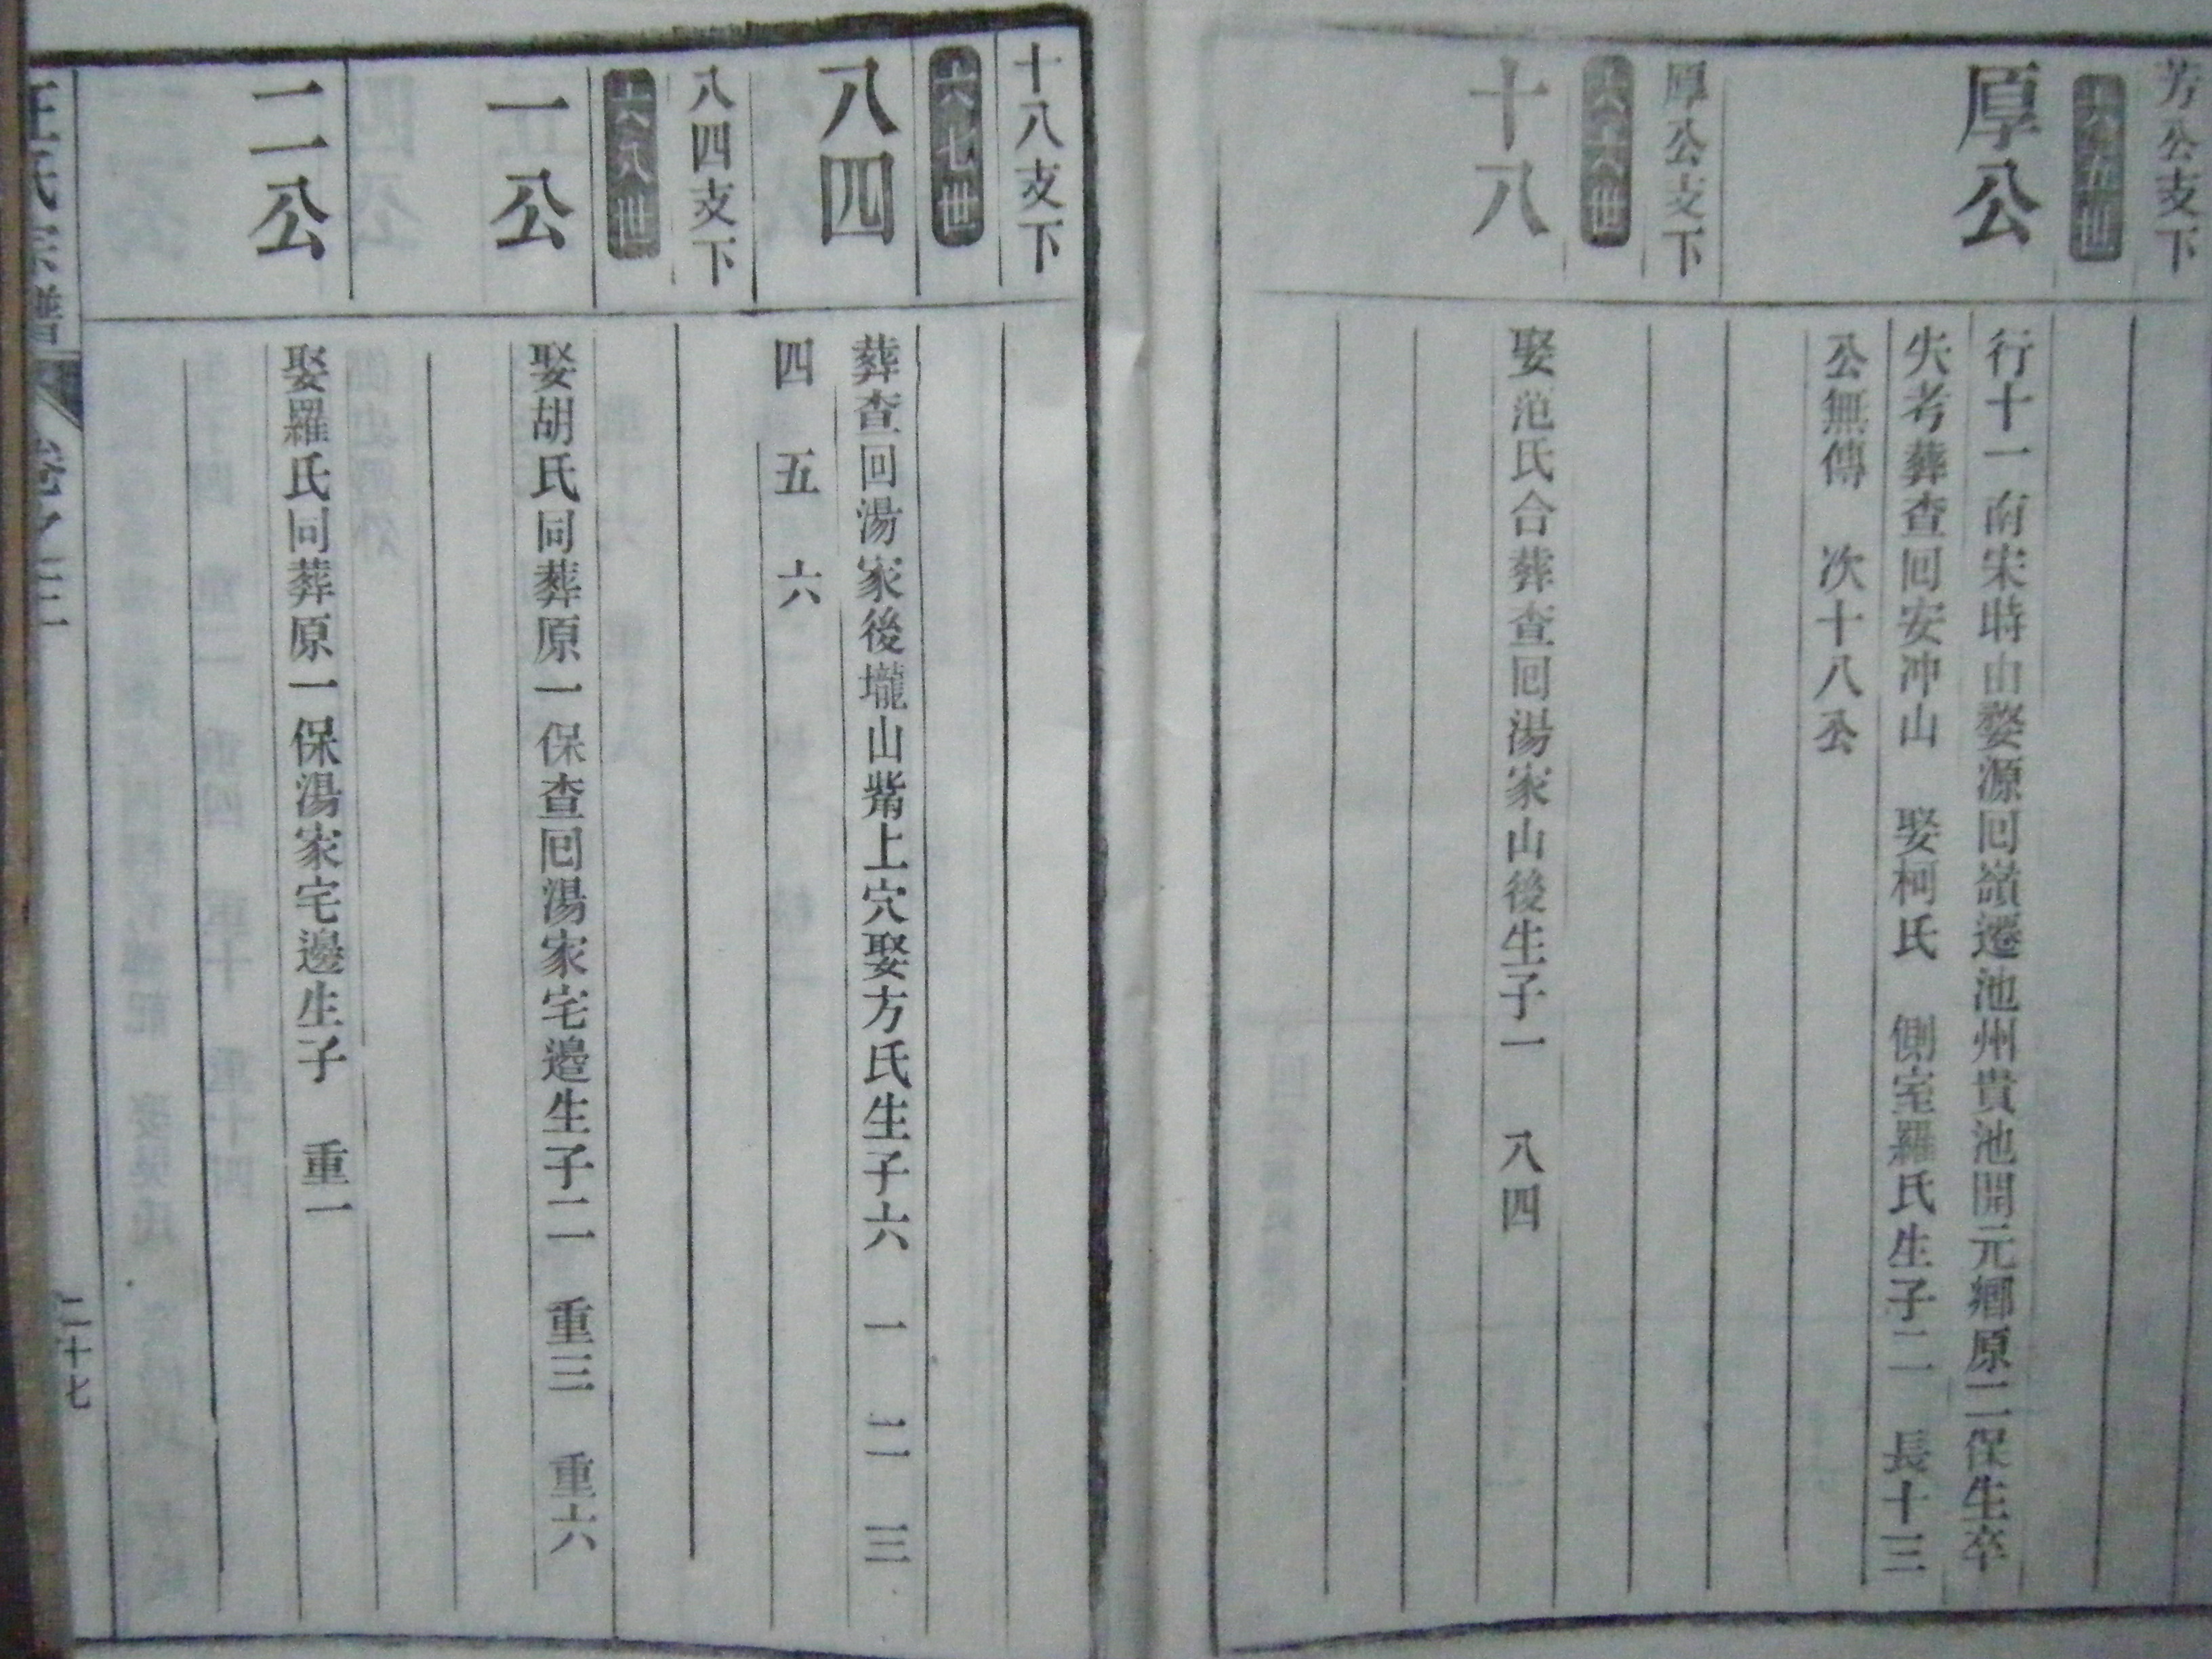 芳公支下
六十五世
厚公
行十一南宋時由婺源回嶺遷池州貴池開元鄉原二保生卒
失考葬查回安冲山　娶柯氏　側室羅氏生子二　長十三
公無傳　次十八公
厚公支下
六十六世
十八
娶范氏合葬查回湯家山後生子一　八四
十八支下
六七世
八四
葬查回湯家後壠山觜上穴娶方氏生子六　一　二　三
四　五　六
八四支下
六八世
一公
娶胡氏同葬原一保查回湯家宅邉生子二　重三　重六
二公
娶羅氏同葬原一保湯家宅邊生子　重一
汪氏宗譜
卷之三
二十七